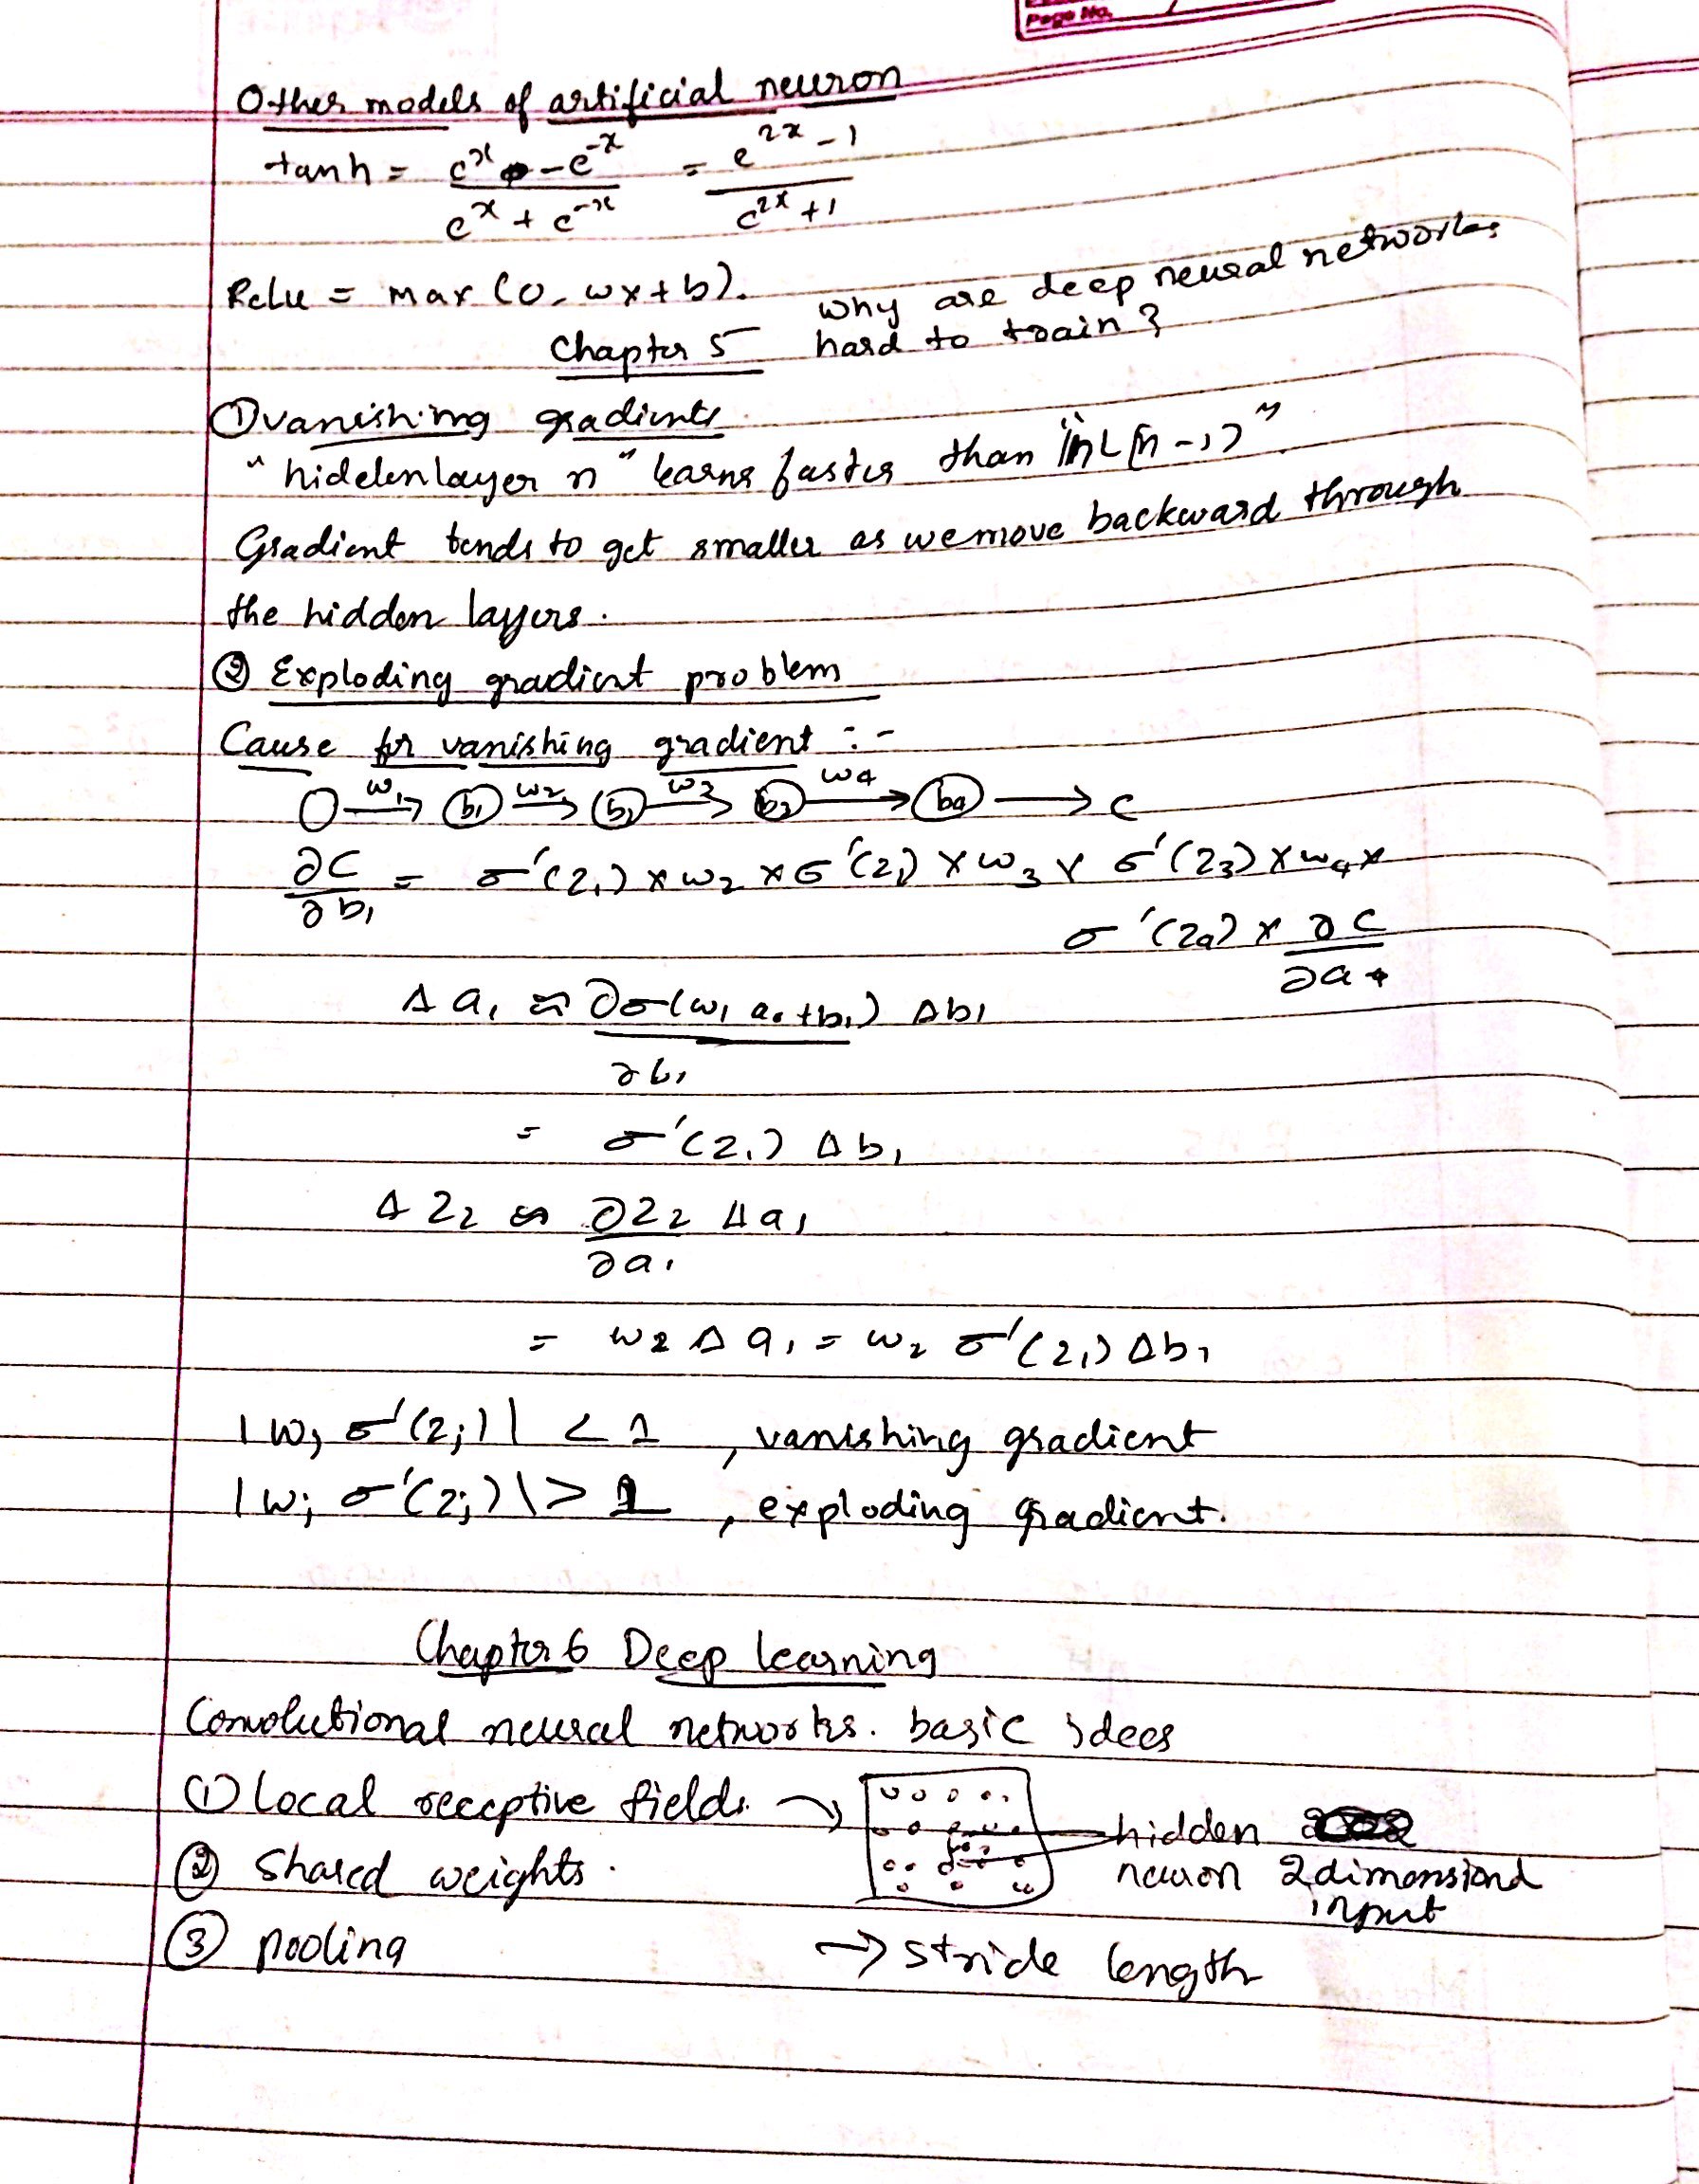 Page No.
Other models of artificial neuron
tanh = (e^x - e^-x) / (e^x + e^-x) = (e^2x - 1) / (e^2x + 1)
Relu = max (0, wx + b).
Chapter 5 why are deep neural networks
hard to train?
① vanishing gradients
"hidden layer n" learns faster than "hL[n-1]"
Gradient tends to get smaller as we move backward through
the hidden layers.
② Exploding gradient problem
Cause for vanishing gradient :-
w₁ w₂ w₃ w₄
b₁ b₂ b₃ b₄ → C
∂C/∂b₁ = σ'(z₁) × w₂ × σ'(z₂) × w₃ × σ'(z₃) × w₄ ×
σ'(z₄) × ∂C/∂a₄
Δa₁ ≈ ∂σ(w₁ a₀ + b₁)/∂b₁ Δb₁
= σ'(z₁) Δb₁
Δz₂ ≈ ∂z₂/∂a₁ Δa₁
= w₂ Δa₁ = w₂ σ'(z₁) Δb₁
|wⱼ σ'(zⱼ)| < 1 , vanishing gradient
|wⱼ σ'(zⱼ)| > 1 , exploding gradient.
Chapter 6 Deep learning
Convolutional neural networks. basic ideas
① Local receptive fields. → hidden
neuron 2 dimensional
input
② Shared weights.
③ pooling → stride length